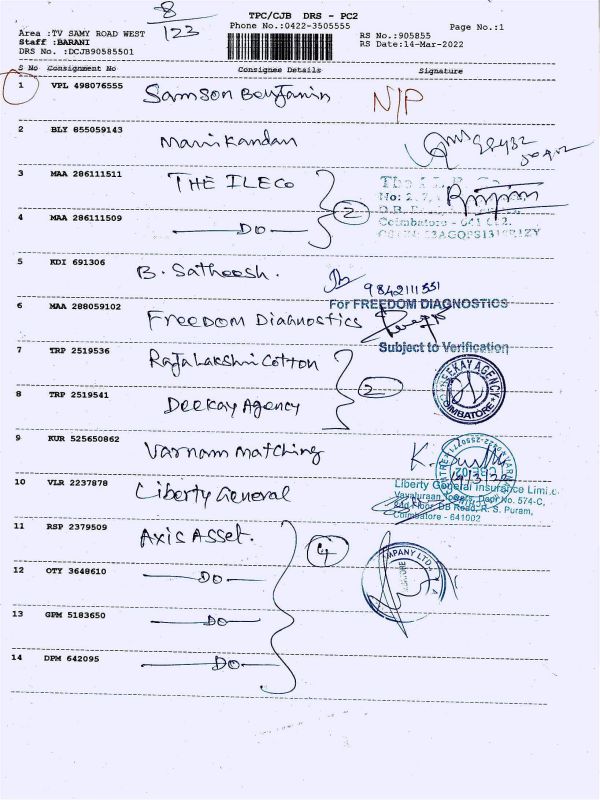 8
123
TPC/CJB DRS - PC2
Phone No.:0422-3505555
Page No.:1
Area :TV SAMY ROAD WEST
Staff :BARANI
DRS No. :DCJB90585501
RS No.:905855
RS Date:14-Mar-2022
S No Consignment No Consignee Details Signature
1 VPL 498076555 Samson Benjamin N/P
2 BLY 855059143 Manikandan
3 MAA 286111511 THE ILECo
2
4 MAA 286111509 DO
Coimbatore - 641 012.
5 KDI 691306 B. Satheesh.
9842111551
For FREEDOM DIAGNOSTICS
6 MAA 288059102 Freedom Diagnostics
Subject to Verification
7 TRP 2519536 RajaLakshmi Cotton
2
DEEKAY AGENCY
COIMBATORE
8 TRP 2519541 Deekay Agency
9 KUR 525650862 Varnam matching
10 VLR 2237878 Liberty General
Liberty General Insurance Limi
Door No. 574-C,
DB Road, R. S. Puram,
Coimbatore - 641002
11 RSP 2379509 Axis Asset.
4
MPANY LTD
12 OTY 3648610 DO
13 GPM 5183650 DO
14 DPM 642095 DO